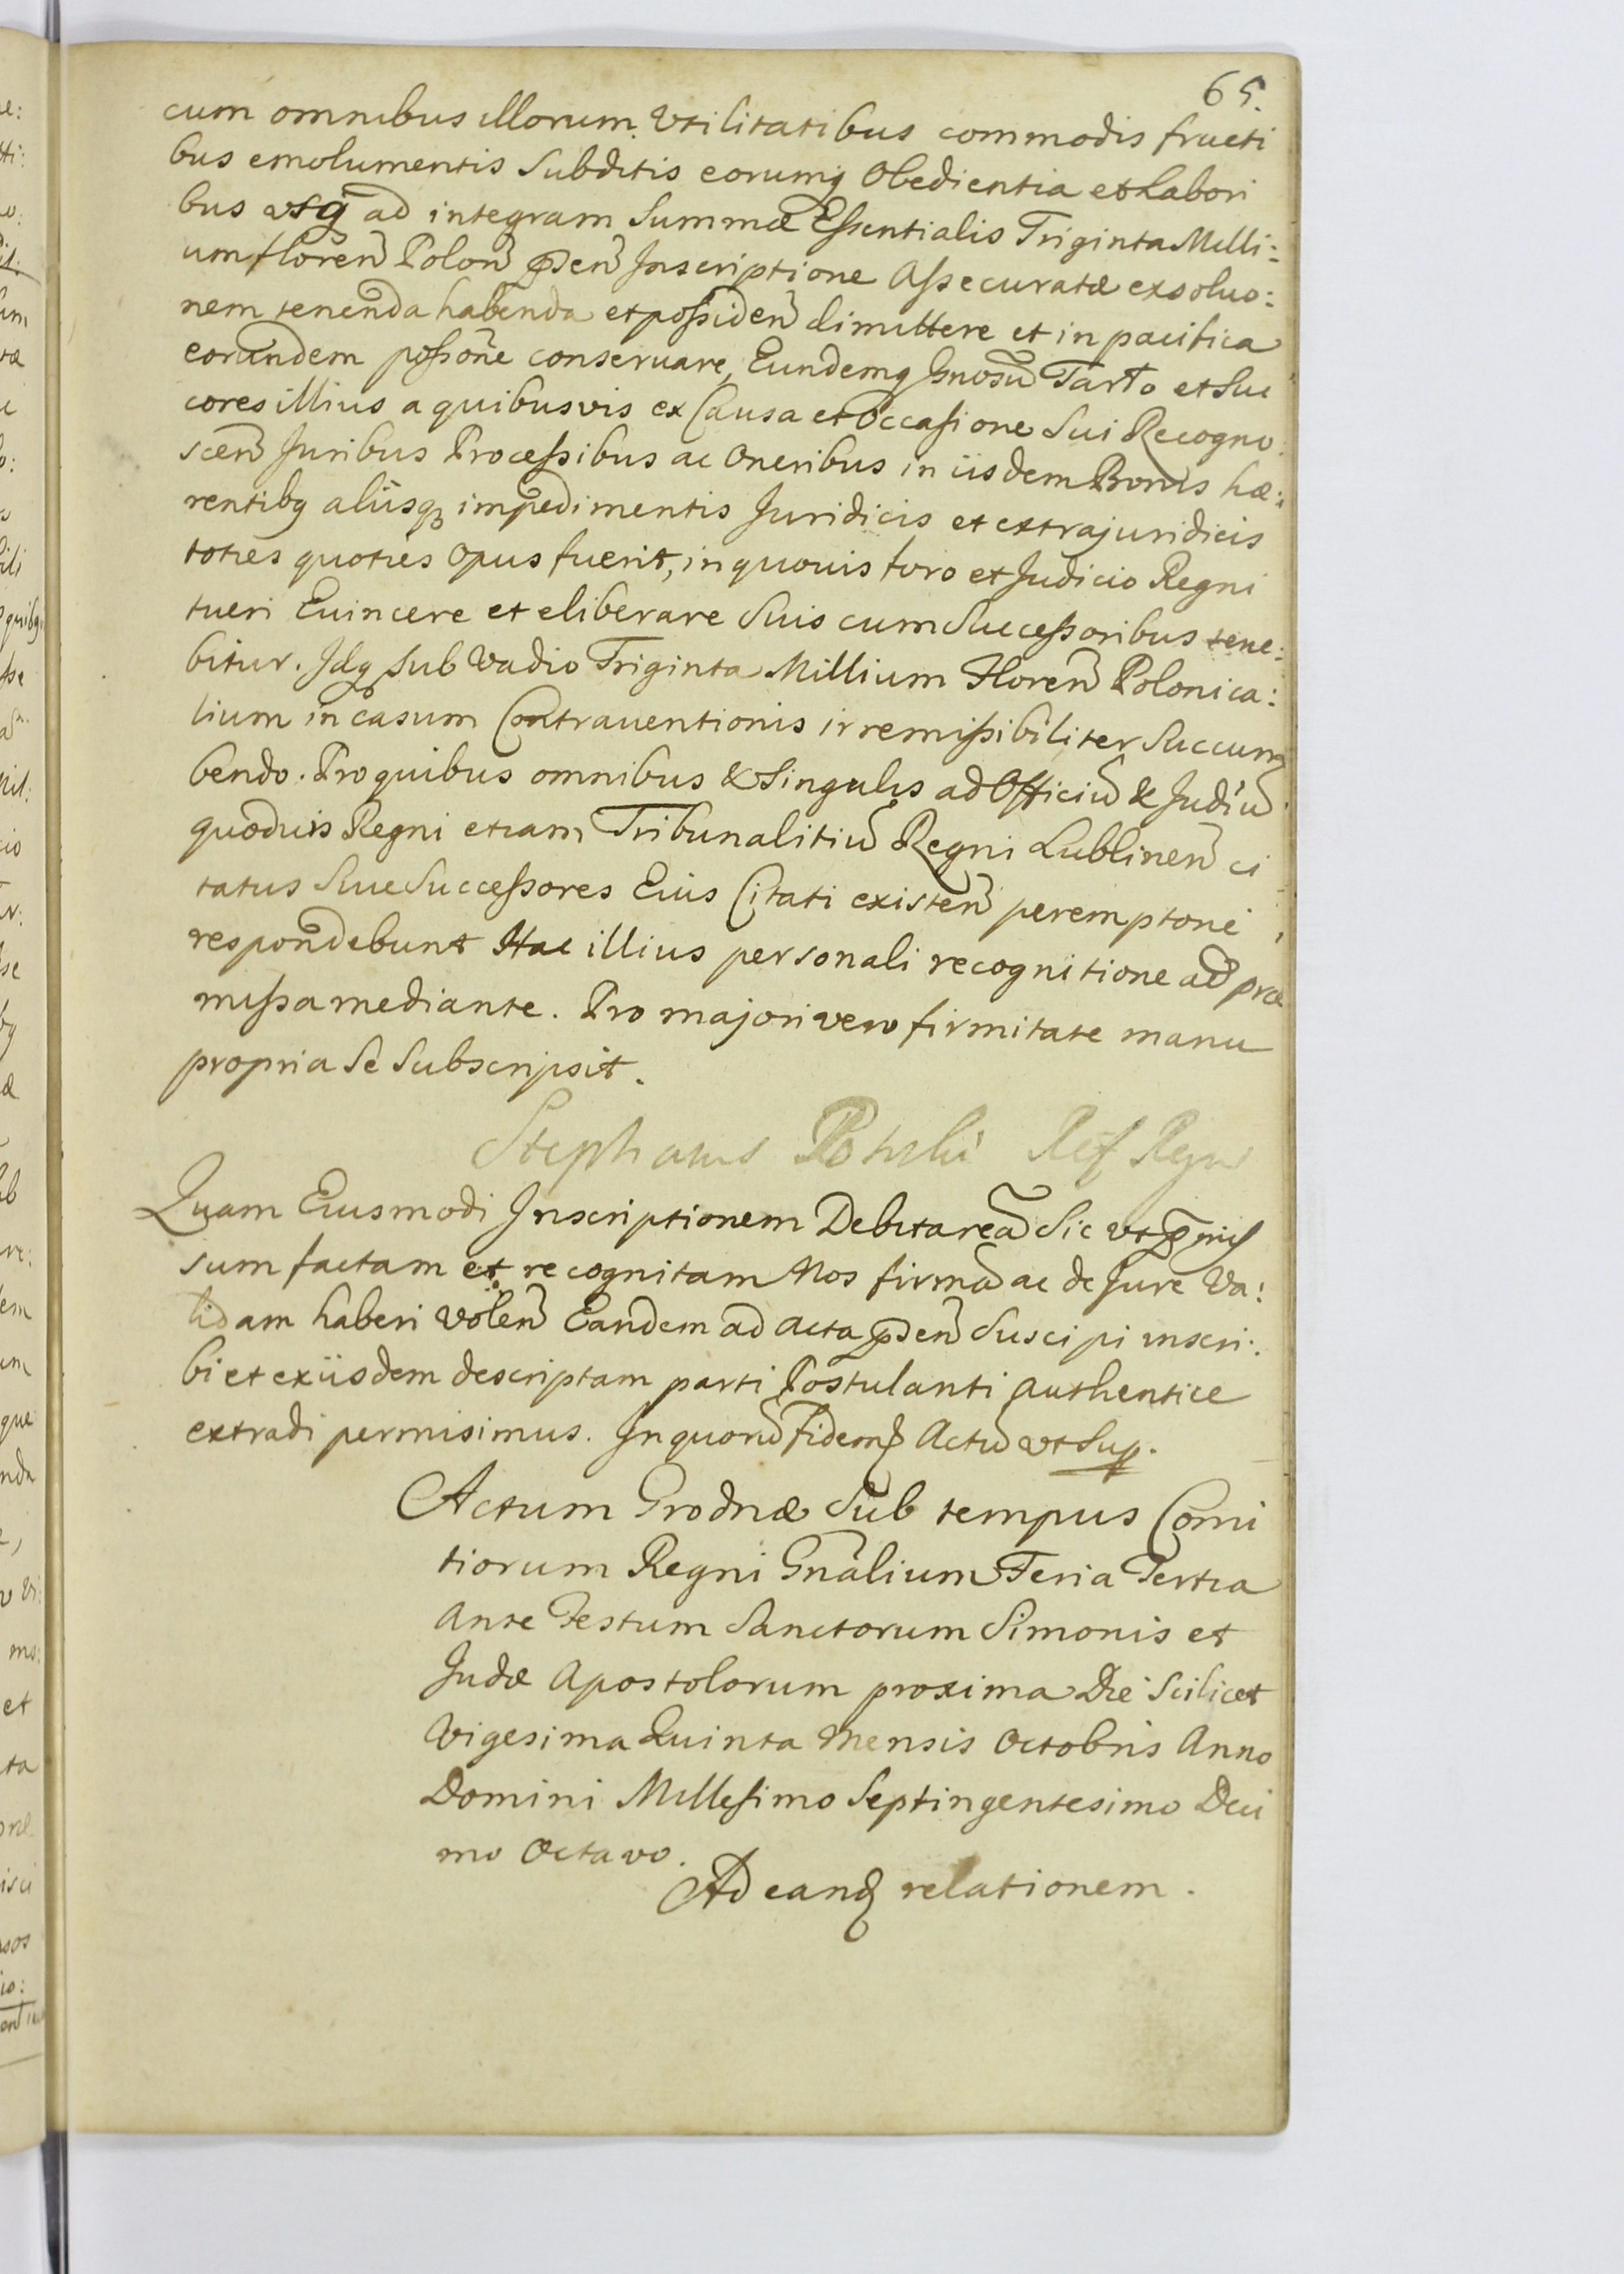 65.
cum omnibus illorum Vtilitatibus commodis fructi
bus emolumentis Subditis eorumq Obedientia et Labori
bus vsq ad integram Summæ Essentialis Triginta Milli:
um floren Polon pðen Inscriptione Assecuratæ exoluo:
nem tenenda habenda et possiden dimittere et in pacifica
eorundem possone conseruare, Eundemq Gnosu Tarło et Suc
cores illius a quibusvis ex Causa et Occasione Sui Recogno
scen Juribus Processibus ac Oneribus in iisdem Bonis hæ:
rentibq aliisq impedimentis Juridicis et extrajuridicis
toties quoties Opus fuerit, in quouis foro et Judicio Regni
tueri Euincere et eliberare Suis cum Successoribus tene:
bitur. Idq Sub Vadio Triginta Millium Floren Polonica:
lium in casum Contrauentionis irremissibiliter Succum
bendo. Pro quibus omnibus & Singulis ad Officiu & Judiu
quoduis Regni etiam Tribunalitiu Regni Lublinen ci
tatus Siue Successores Eius Citati existen peremptorie
respondebunt Hac illius personali recognitione ad præ
missa mediante. Pro majori vero firmitate manu
propria Se Subscripsit.
Stephanus Potuli Ref Regni
Quam Eiusmodi Inscriptionem Debitarea Sic vt pmis
sum factam et recognitam Nos firma ac de Jure Va:
lidam haberi volen Eandem ad acta pðen Suscipi inscri:
bi et ex iisdem descriptam parti Postulanti authentice
extradi permisimus. In quoru fidem Actu vt Sup.
Actum Grodnæ Sub tempus Comi
tiorum Regni Gnalium Feria Tertia
Ante Festum Sanctorum Simonis et
Judæ Apostolorum proxima Die Scilicet
Vigesima Quinta Mensis Octobris Anno
Domini Millesimo Septingentesimo Deci
mo Octavo.
Ad eand relationem.